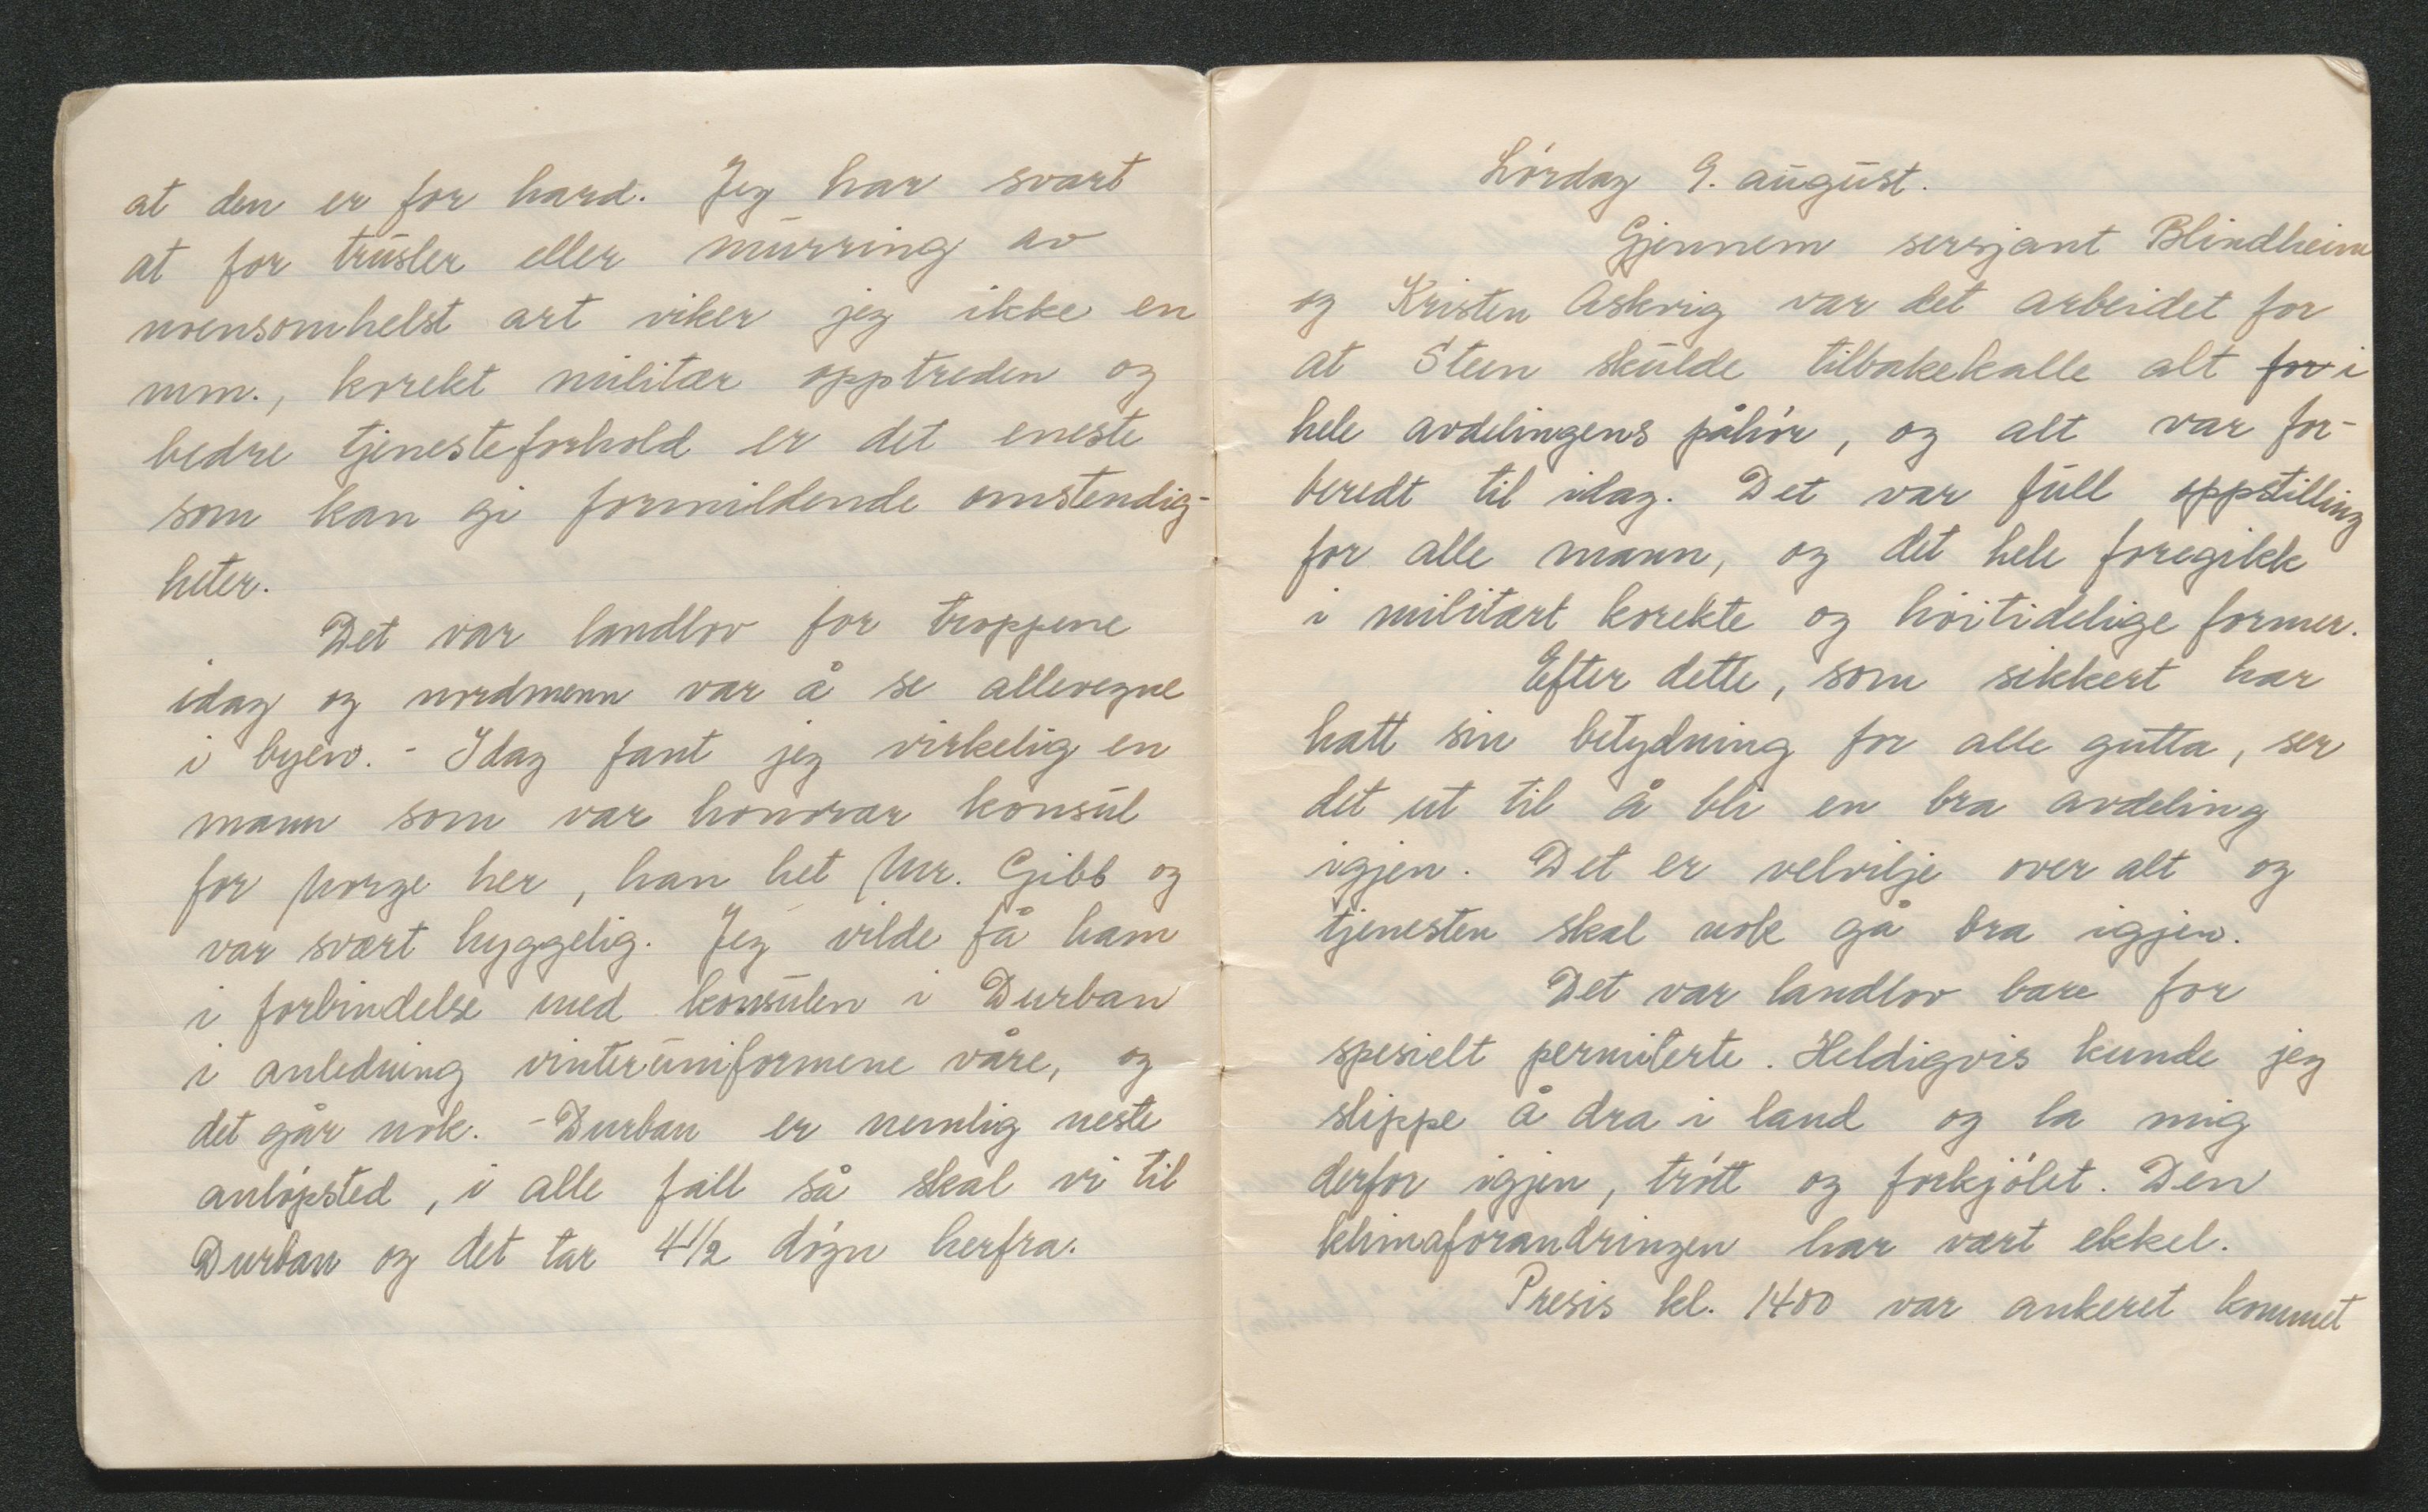 at den er for hard. Jeg har svart
at for trusler eller murring av
noensomhelst art viker jeg ikke en
mm., korekt militær opptreden og
bedre tjenesteforhold er det eneste
som kan gi formildende omstendig-
heter.
Det var landlov for troppene
idag og nordmenn var å se allevegne
i byen. - Idag fant jeg virkelig en
mann som var honorar konsul
for Norge her, han het Mr. Gibb og
var svært hyggelig. Jeg vilde få ham
i forbindelse med konsulen i Durban
i anledning vinteruniformene våre, og
det går nok. - Durban er nemlig neste
anløpsted, i alle fall så skal vi til
Durban og det tar 4 1/2 døgn herfra.
Lørdag 9. august.
Gjennem sersjant Blindheim
og Kristen Askvig var det arbeidet for
at Steen skulde tilbakekalle alt for i
hele avdelingens påhør, og alt var for-
beredt til idag. Det var full oppstilling
for alle mann, og det hele foregikk
i militært korekte og høitidelige former.
Efter dette, som sikkert har
hatt sin betydning for alle gutta, ser
det ut til å bli en bra avdeling
igjen. Det er velvilje over alt og
tjenesten skal nok gå bra igjen.
Det var landlov bare for
spesielt permiterte. Heldigvis kunde jeg
slippe å dra i land og la mig
derfor igjen, trøtt og forkjølet. Den
klimaforandringen har vært ekkel.
Presis kl. 1400 var ankeret kommet